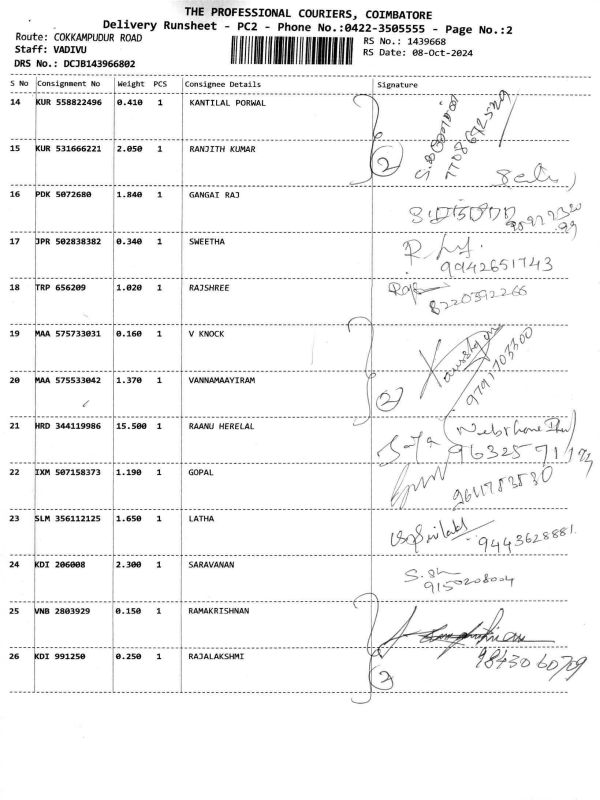 THE PROFESSIONAL COURIERS, COIMBATORE
Delivery Runsheet - PC2 - Phone No.:0422-3505555 - Page No.:2
Route: COKKAMPUDUR ROAD
RS No.: 1439668
Staff: VADIVU
RS Date: 08-Oct-2024
DRS No.: DCJB143966802
S No Consignment No Weight PCS Consignee Details Signature
14 KUR 558822496 0.410 1 KANTILAL PORWAL
7708672529
15 KUR 531666221 2.050 1 RANJITH KUMAR
2
16 PDK 5072680 1.840 1 GANGAI RAJ
17 JPR 502838382 0.340 1 SWEETHA
9942651743
18 TRP 656209 1.020 1 RAJSHREE
8220392266
19 MAA 575733031 0.160 1 V KNOCK
9791703300
20 MAA 575533042 1.370 1 VANNAMAAYIRAM
2
21 HRD 344119986 15.500 1 RAANU HERELAL
22 IXM 507158373 1.190 1 GOPAL
23 SLM 356112125 1.650 1 LATHA
9443628881
24 KDI 206008 2.300 1 SARAVANAN
9150208004
25 VNB 2803929 0.150 1 RAMAKRISHNAN
9843060709
26 KDI 991250 0.250 1 RAJALAKSHMI
2